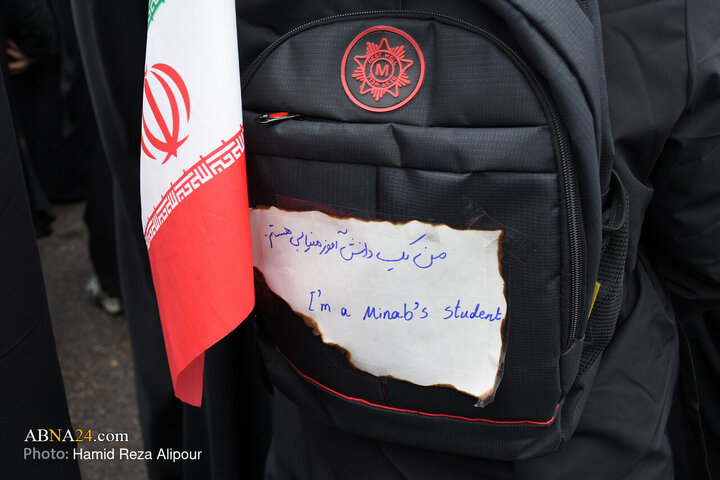 M
من یک دانش آموز مینابی هستم.
I'm a Minab's student
ABNA24.com
Photo: Hamid Reza Alipour